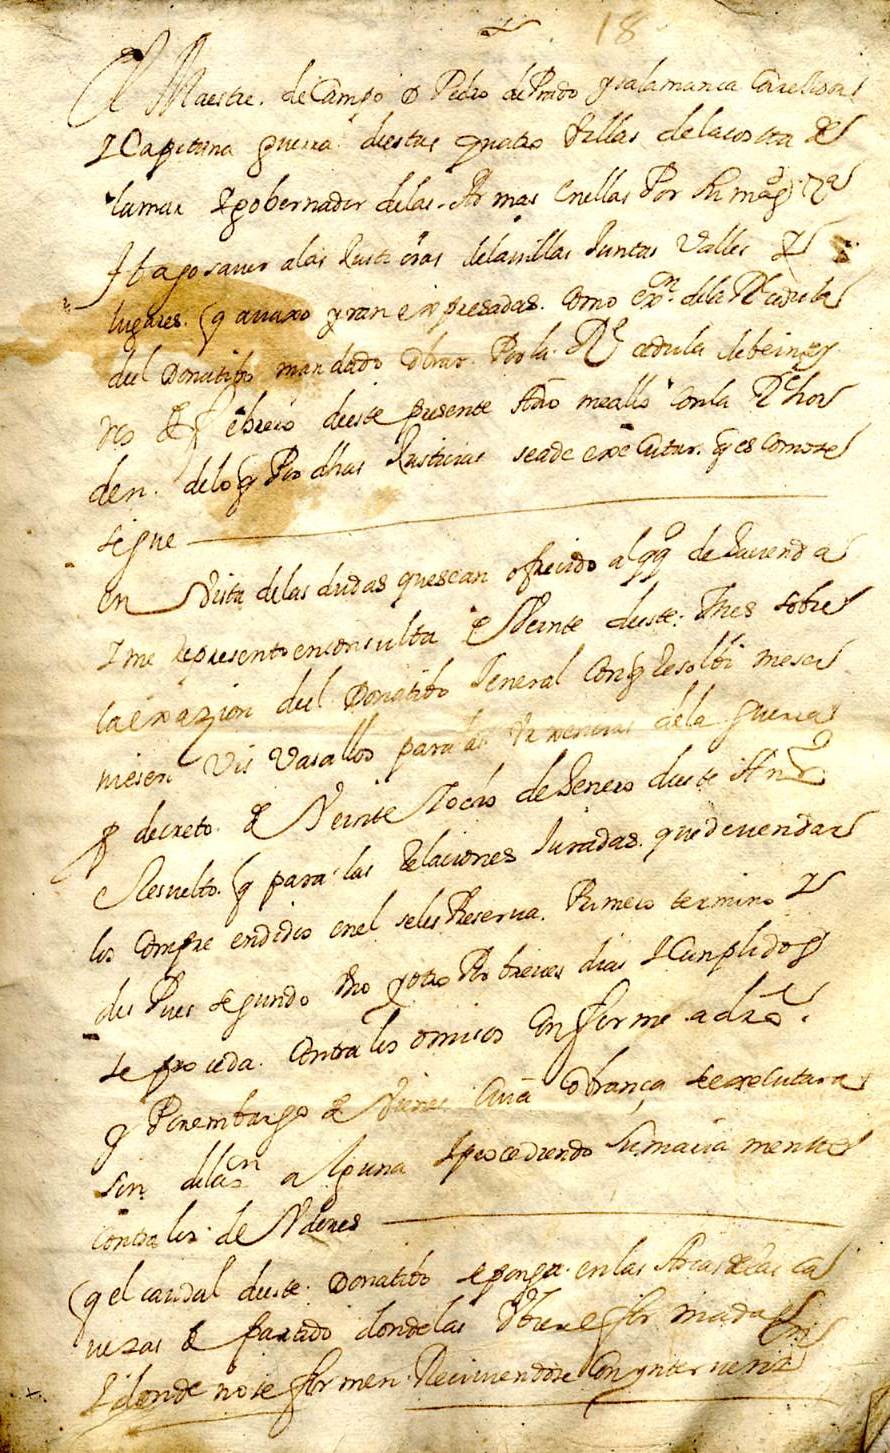 18
El Maestre. de Campo D Pedro de Prado y salamanca Correxidor
I Capitan a guerra destas quatro Villas de la costa de
la mar I gobernador de las Armas en ellas Por su magd
I hago saver a las Justicias de las villas Juntas Valles I
lugares. q avaxo yran expresadas. Como en de la Rl cedula
del Donatibo mandado cobrar. Por la Rl cedula de beinte y
de febrero deeste presente Año me allo Con la Rl hor
den. de lo q Por dhas Justicias sea de executar. q es Como se
sigue
en Vista de las dudas que sean ofrecido al de Hacienda
I me represento en consulta de Veinte deeste. Mes sobre
la exazion del Donatibo General Con q Resolbi me sir
biesen mis Vasallos para las de la guerra
decreto. de Veinte I ocho de Henero deeste Año
Resuelto. q para las Relaciones Juradas. que deven dar
los Comprendidos en el se les Reserva. Primero termino I
des Pues segundo Uno y otro Por breves dias I Cunplidos
se proceda. Contra los omisos Conforme a dro.
q Por embargo de Vienes Cuia cobrança se executara
sin dilacn alguna I procediendo Sumaria mente
Contra los. deudores
q el caudal deeste. Donatibo se ponga. en las Arcas de las ca
vezas de partido donde las Ubiere formadas
I donde no se formen. Reciviendose Con yntervenzn